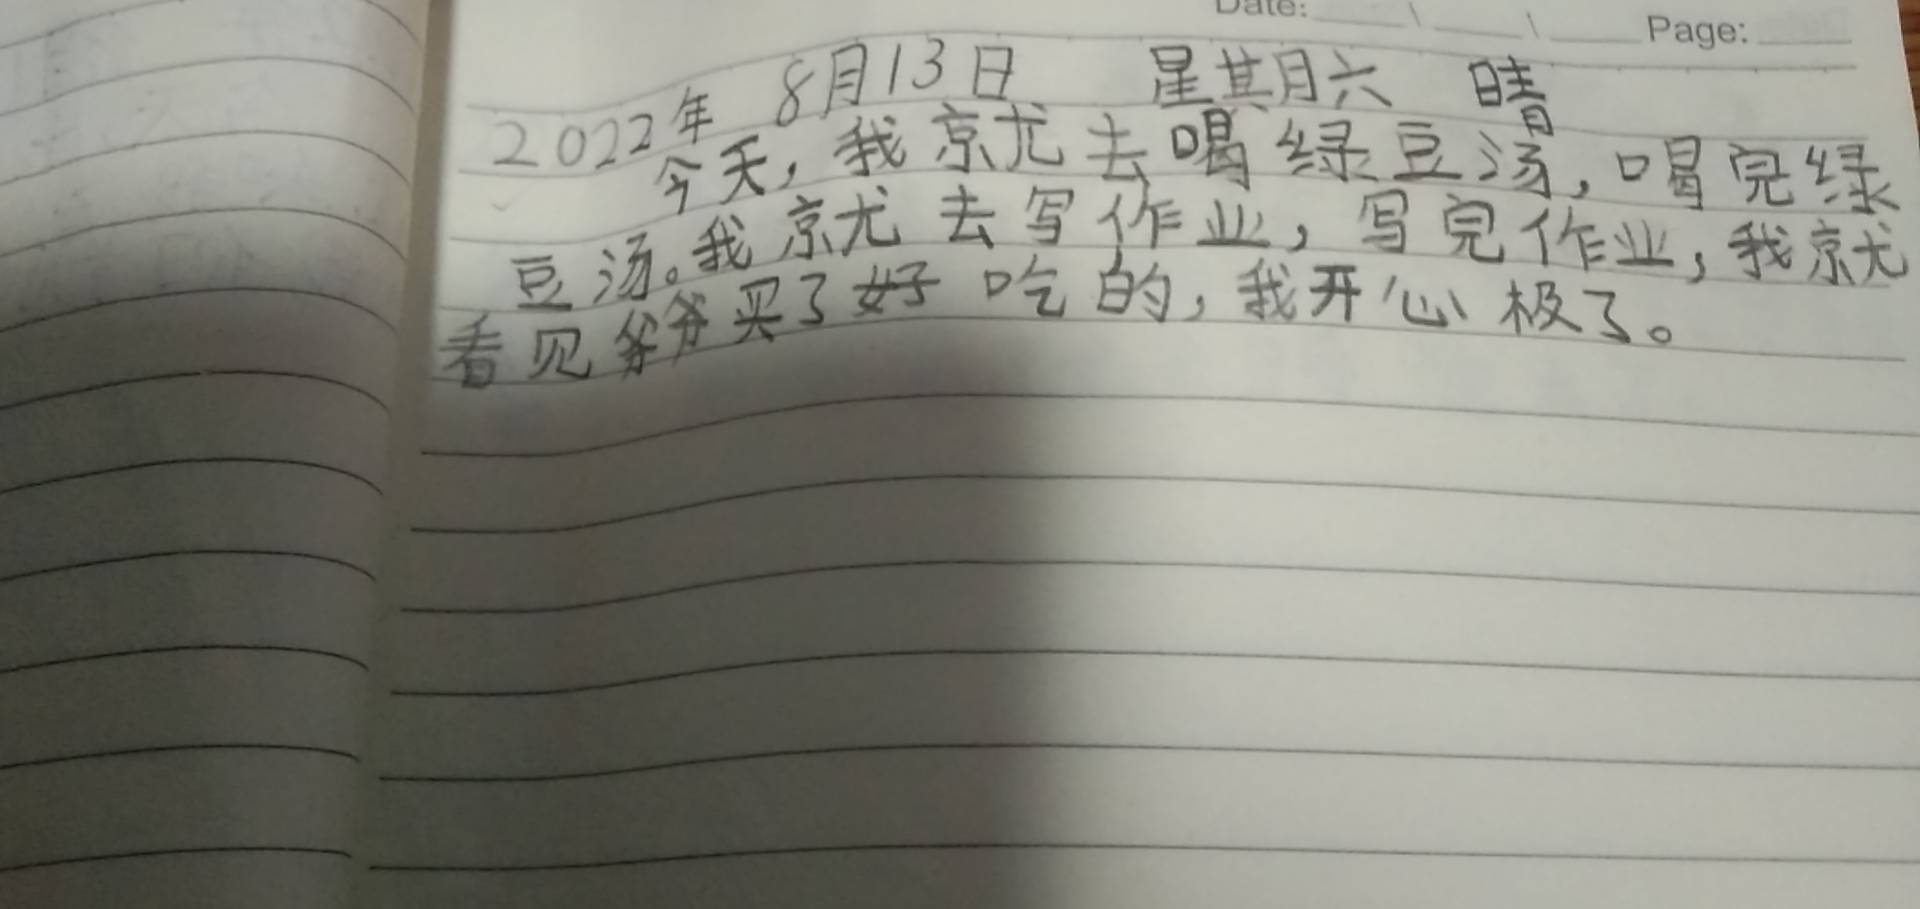 Date: Page:
2022年 8月13日 星其月六 晴
今天，我就去喝绿豆汤，喝完绿
豆汤。我就去写作业，写完作业，我就
看见爷爷买了好吃的，我开心极了。